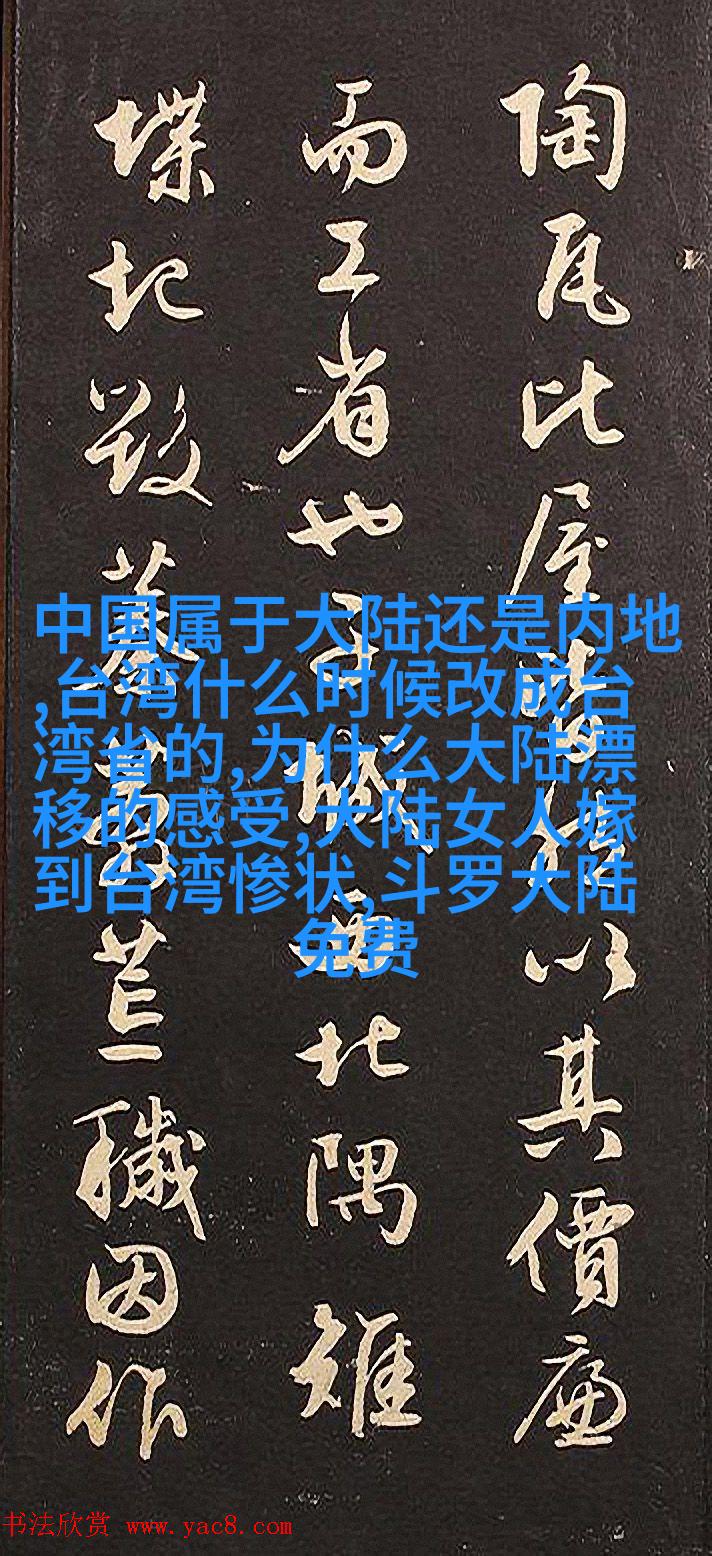 陶瓦比屋皆然以其價廉
而工省也子城西北隅雉
堞圮毀蓁莽荒穢因作
中国属于大陆还是内地
,台湾什么时候改成台
湾省的,为什么大陆漂
移的感受,大陆女人嫁
到台湾惨状,斗罗大陆
免费
书法欣赏 www.yac8.com